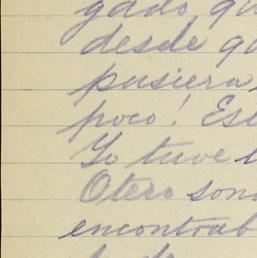 gado qu
desde qu
pusiera
poco! Es
Yo tuve l
Otero son
encontrab